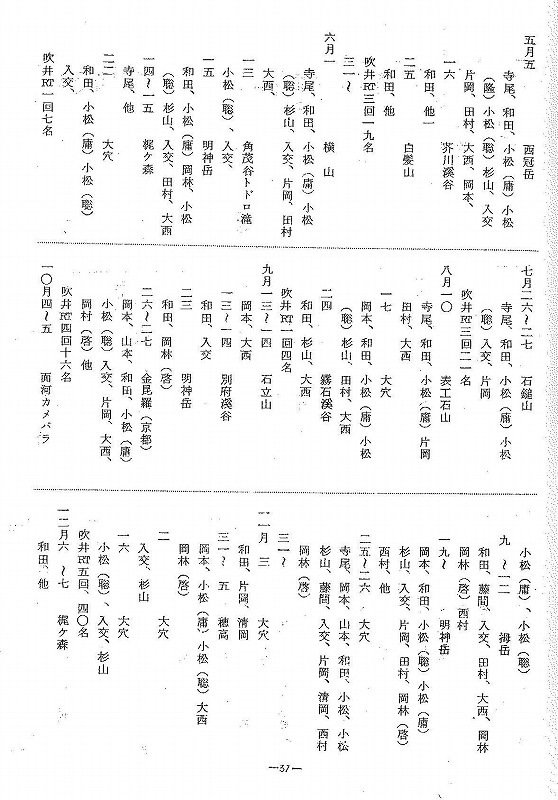 五月五　西冠岳
寺尾、和田、小松（庸）小松
（隆）小松（聡）杉山、入交
片岡、田村、大西、岡本、
一六　芥川渓谷
和田、他一
二五　白髪山
和田、他
吹井RT三回一九名
三一〜
六月一　横山
寺尾、和田、小松（庸）小松
（聡）杉山、入交、片岡、田村
大西、
一三　角茂谷トドロ滝
小松（聡）、入交、
一五　明神岳
和田、小松（庸）岡林、小松
（聡）杉山、入交、田村、大西
一四〜一五　梶ケ森
寺尾、他
二二　大穴
和田、小松（庸）小松（聡）
入交、
吹井RT一回七名
七月二六〜二七　石鎚山
寺尾、和田、小松（庸）小松
（聡）入交、片岡
吹井RT三回二一名
八月一〇　表工石山
寺尾、和田、小松（庸）片岡
田村、大西
一七　大穴
岡本、和田、小松（庸）小松
（聡）杉山、田村、大西
二四　霧石渓谷
和田、杉山、大西
吹井RT一回四名
九月一三〜一四　石立山
岡本、大西
一三〜一四　別府渓谷
和田、入交
二三　明神岳
和田、岡林（啓）
二六〜二七　金毘羅（京都）
岡本、山本、和田、小松（庸）
小松（聡）入交、片岡、大西、
岡村（啓）他
吹井RT四回十六名
一〇月四〜五　面河カメバラ
小松（庸）、小松（聡）
九〜一二
和田、藤間、入交、田村、大西、岡林
岡林（啓）西村
一九〜　明神岳
岡本、和田、小松（聡）小松（庸）
杉山、入交、片岡、田村、岡林（啓）
西村、他
二五〜二六　大穴
寺尾、岡本、山本、和田、小松、小松
杉山、藤間、入交、片岡、清岡、西村
岡林（啓）
三一〜
一一月三　大穴
和田、片岡、清岡
三一〜五　穂高
岡本、小松（庸）小松（聡）大西
岡林（啓）
二　大穴
入交、杉山
一六　大穴
小松（聡）、入交、杉山
吹井RT五回、四〇名
一二月六〜七　梶ケ森
和田、他
—37—